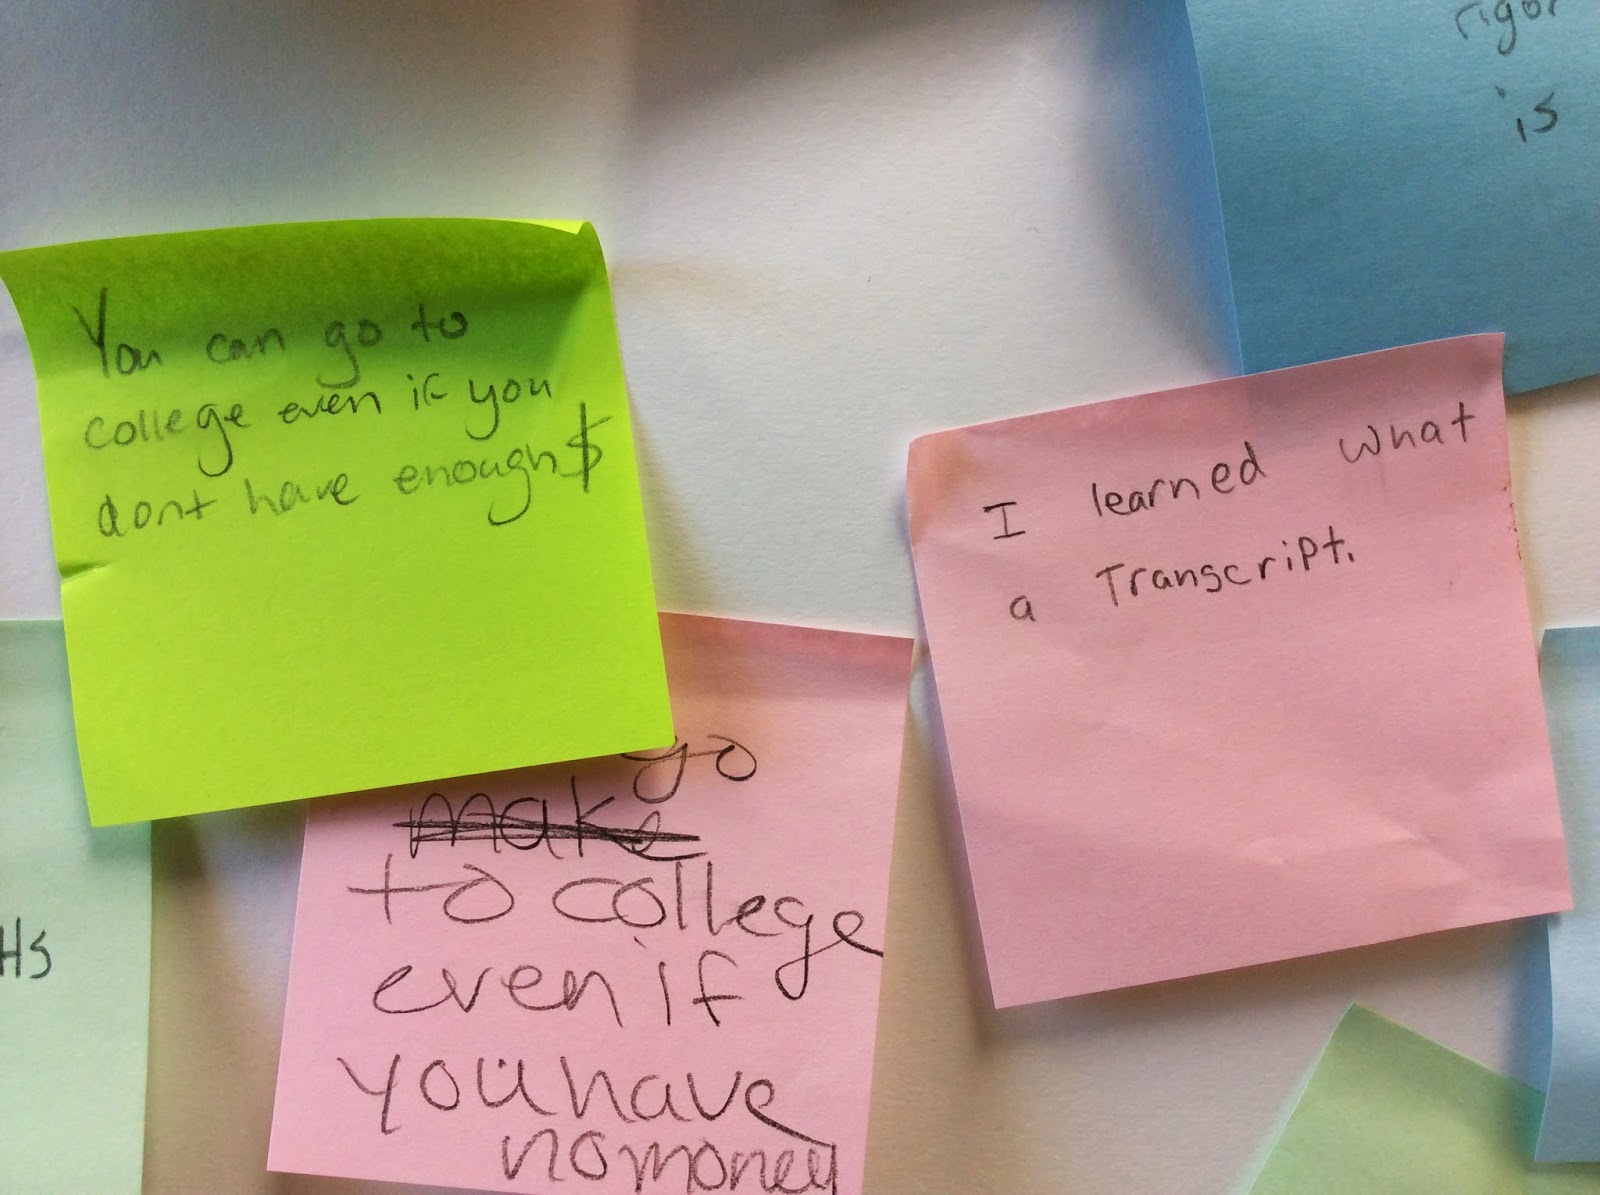 You can go to
college even if you
dont have enough $
I learned what
a Transcript.
go
make
to college
even if
you have
no money
rigor
is
HS